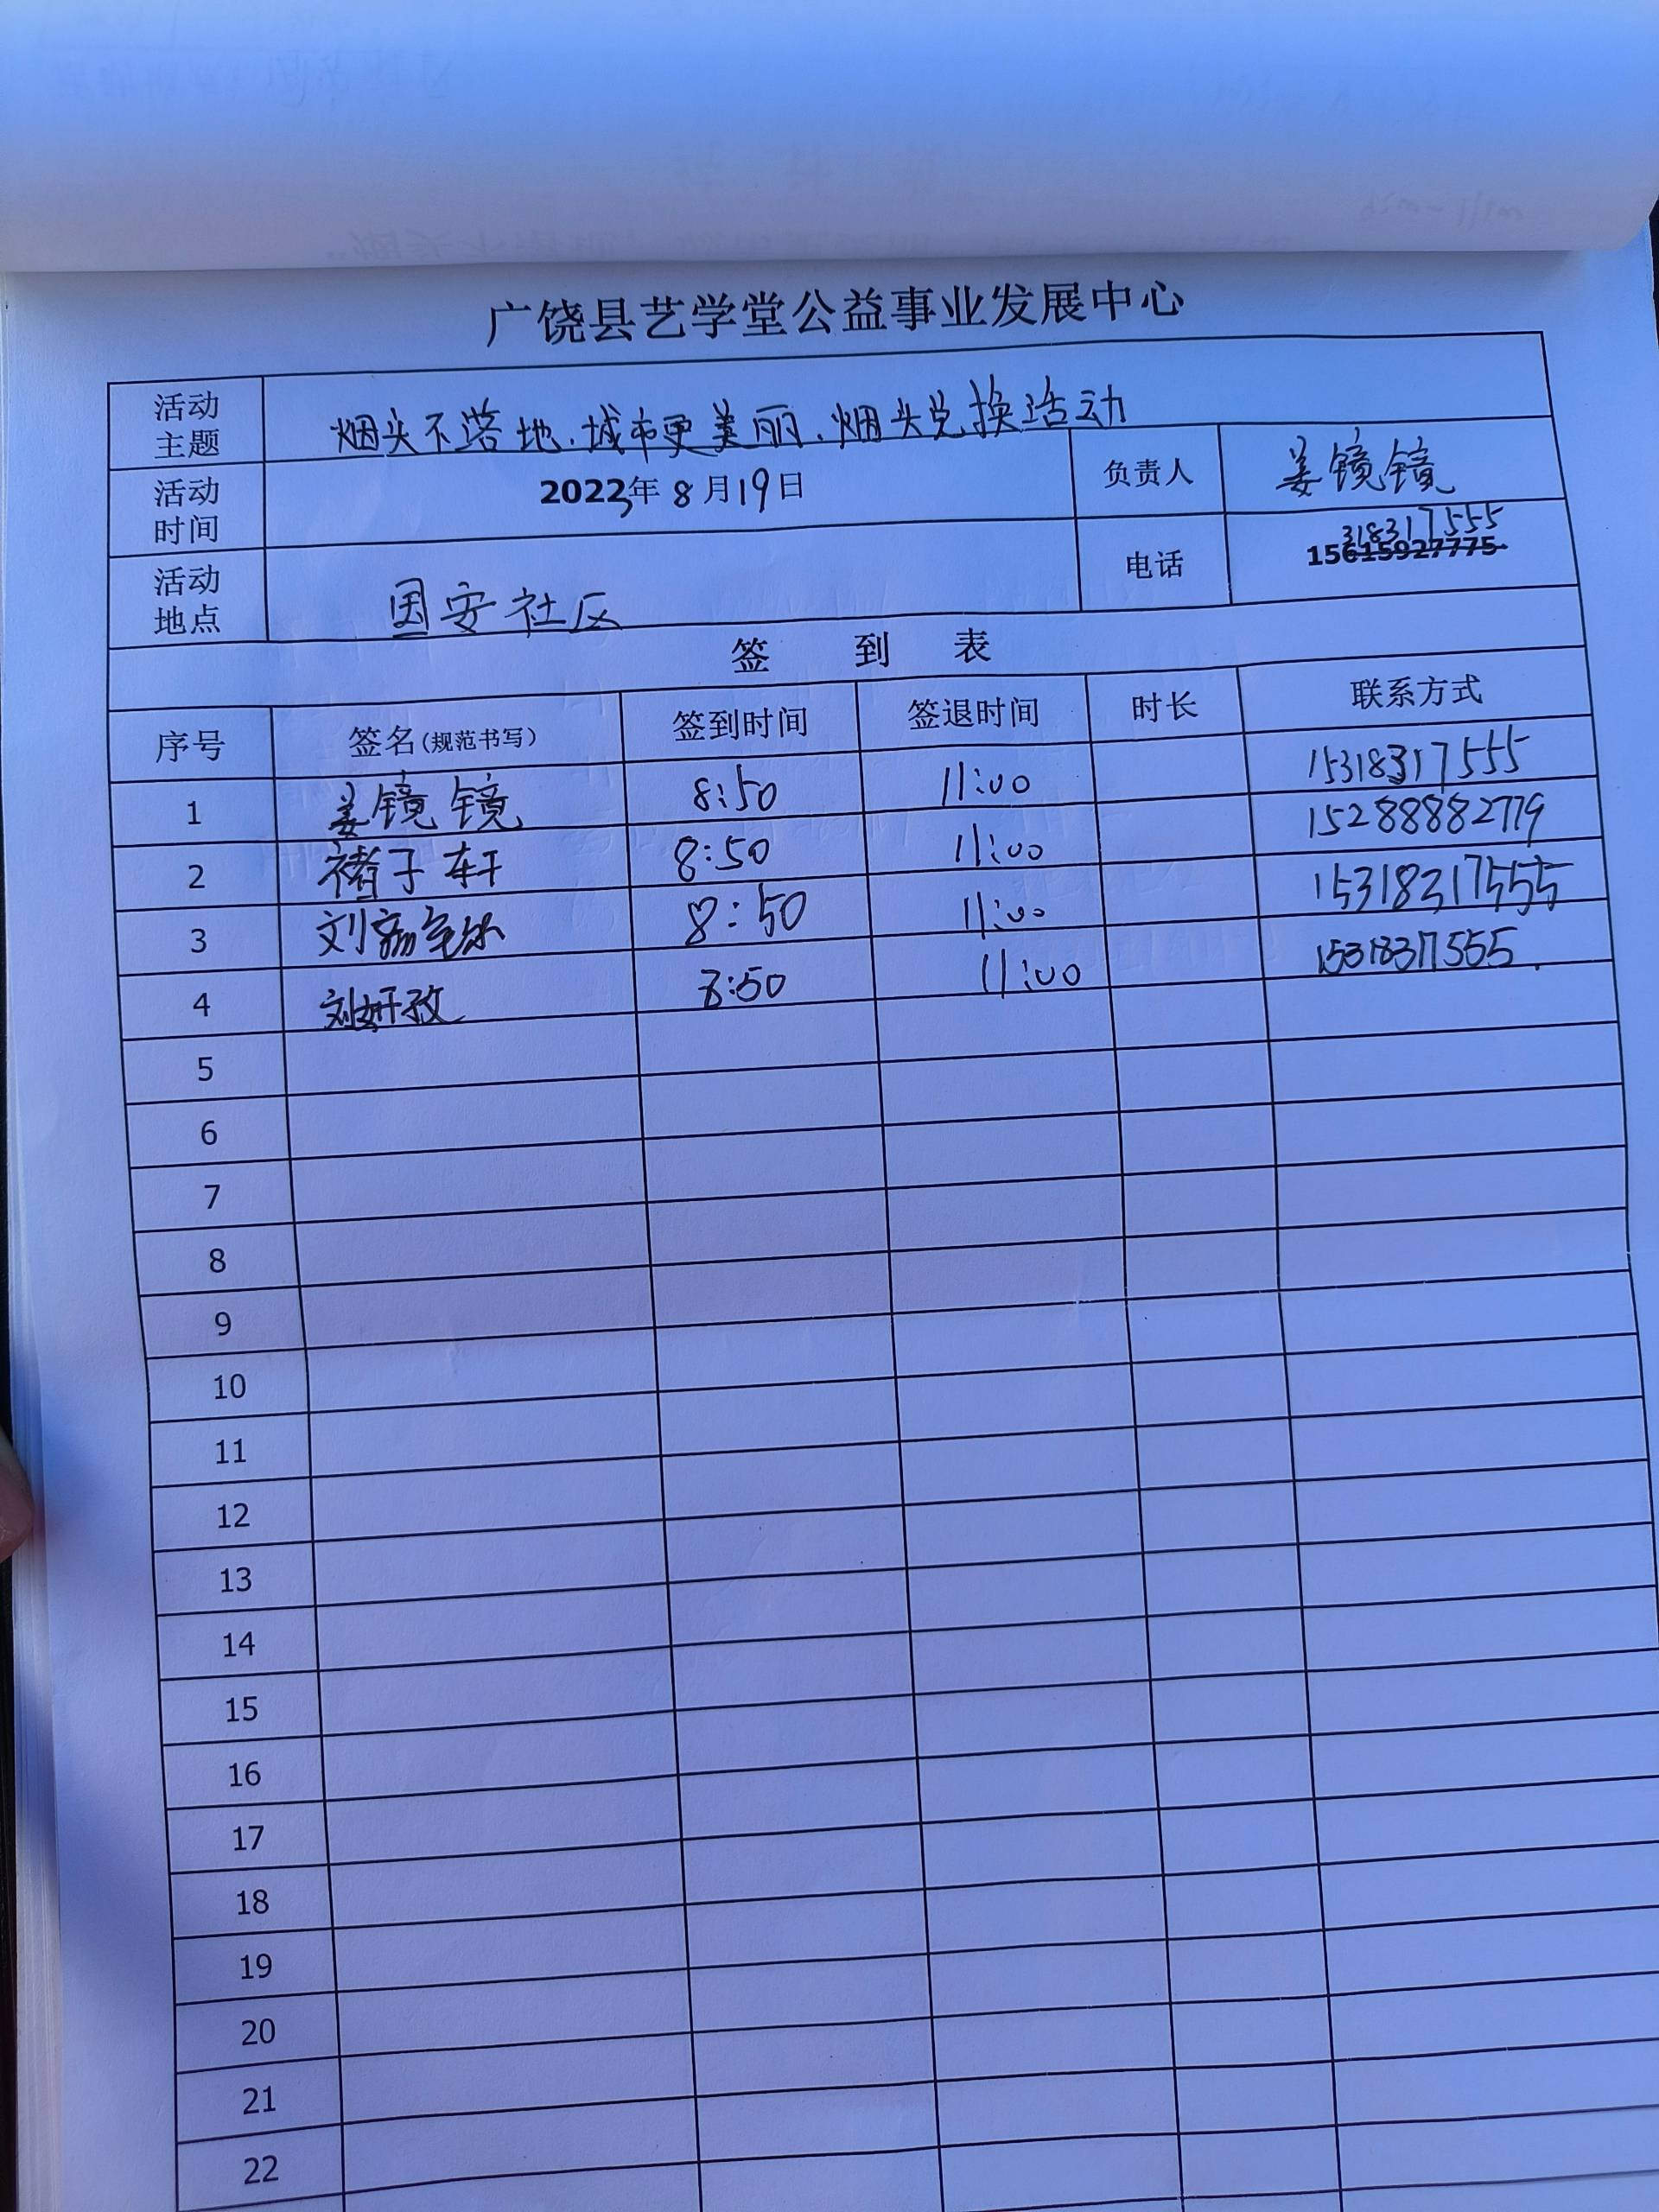 广饶县艺学堂公益事业发展中心
活动主题 烟头不落地.城市更美丽.烟头兑换活动
活动时间 2023年8月19日 负责人 姜镜镜
活动地点 国安社区 电话 15318317555
签到表
序号 签名(规范书写) 签到时间 签退时间 时长 联系方式
1 姜镜镜 8:50 11:00 15318317555
2 褚子轩 8:50 11:00 15288882779
3 刘 8:50 11:00 15318317555
4 刘妍孜 8:50 11:00 1531831755​5
5
6
7
8
9
10
11
12
13
14
15
16
17
18
19
20
21
22